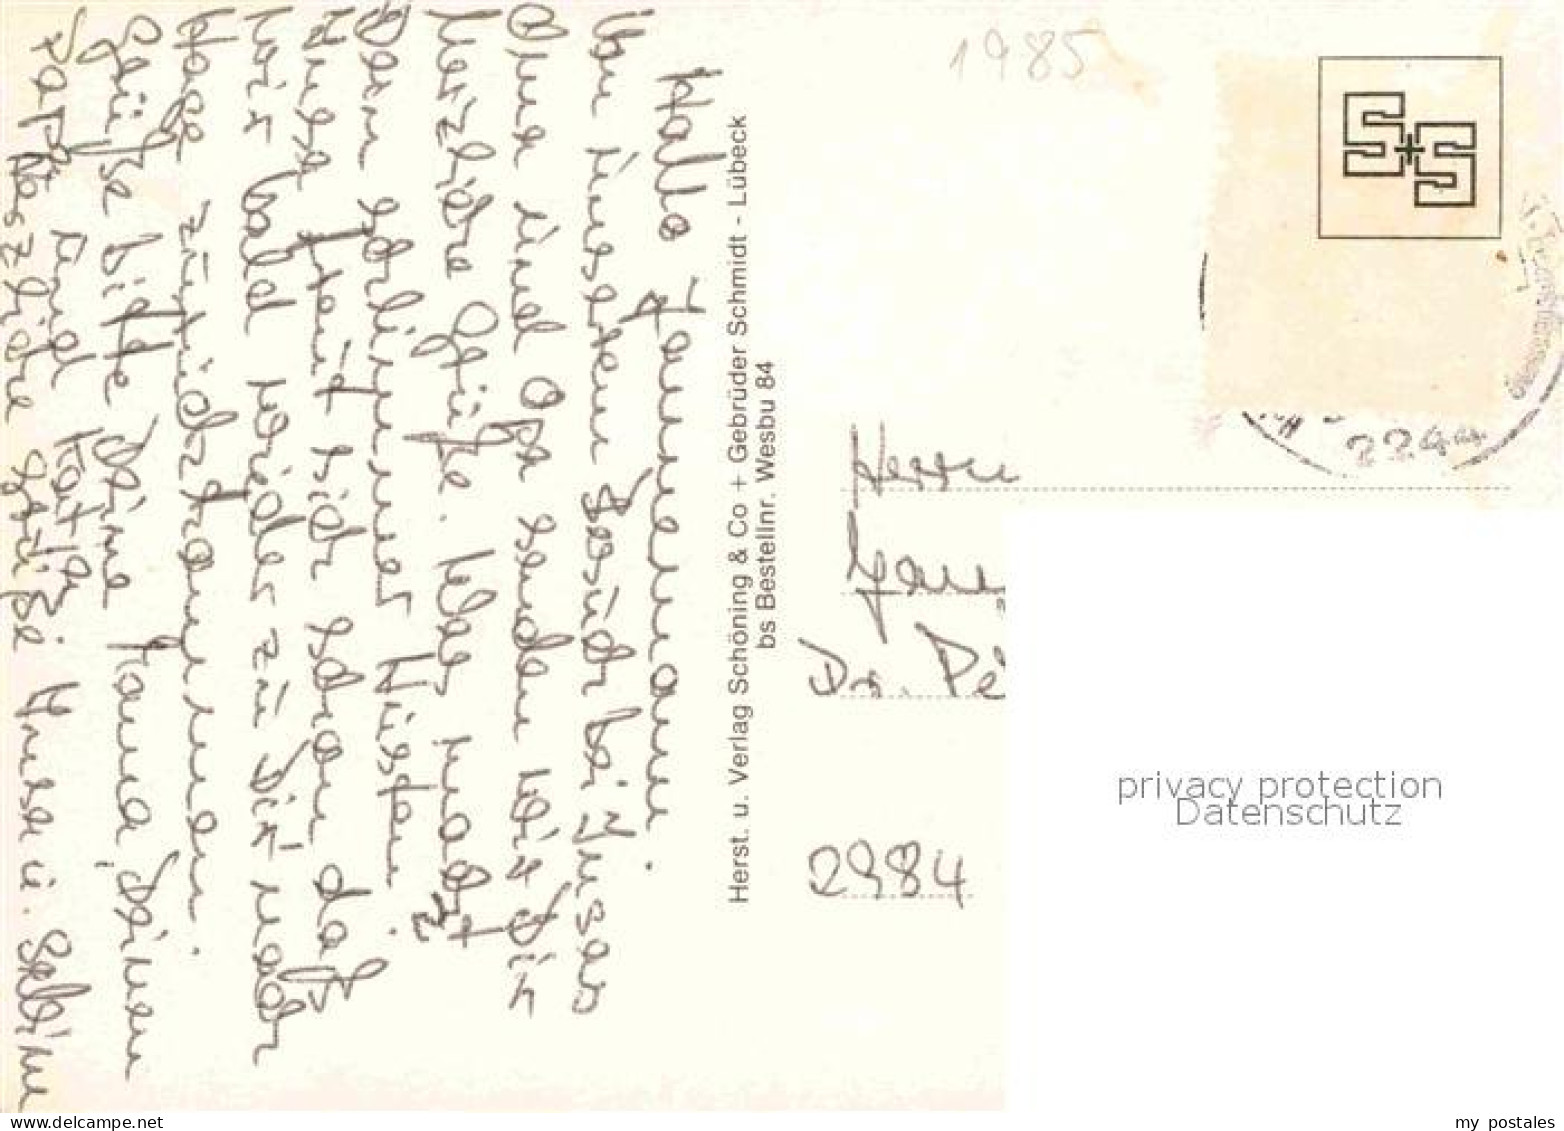 Hallo Jannemann.
Von unserem Besuch bei Jusos
Oma und Opa senden wir Dir
herzliche Grüße. Was macht
Dein schlimmer Husten?
Insa freut sich schon daß
wir bald wieder zu Dir nach
Hage zurückkommen.
Grüße bitte Deine Mama Deinen
Papa und Katja
Herzliche Grüße Insa u. Sabine
Herst. u. Verlag Schöning & Co + Gebrüder Schmidt - Lübeck
bs Bestellnr. Wesbu 84
1985
S+S
224
Herrn
Jan
Dr. Pe
2984
privacy protection
Datenschutz
delcampe.net
my_postales